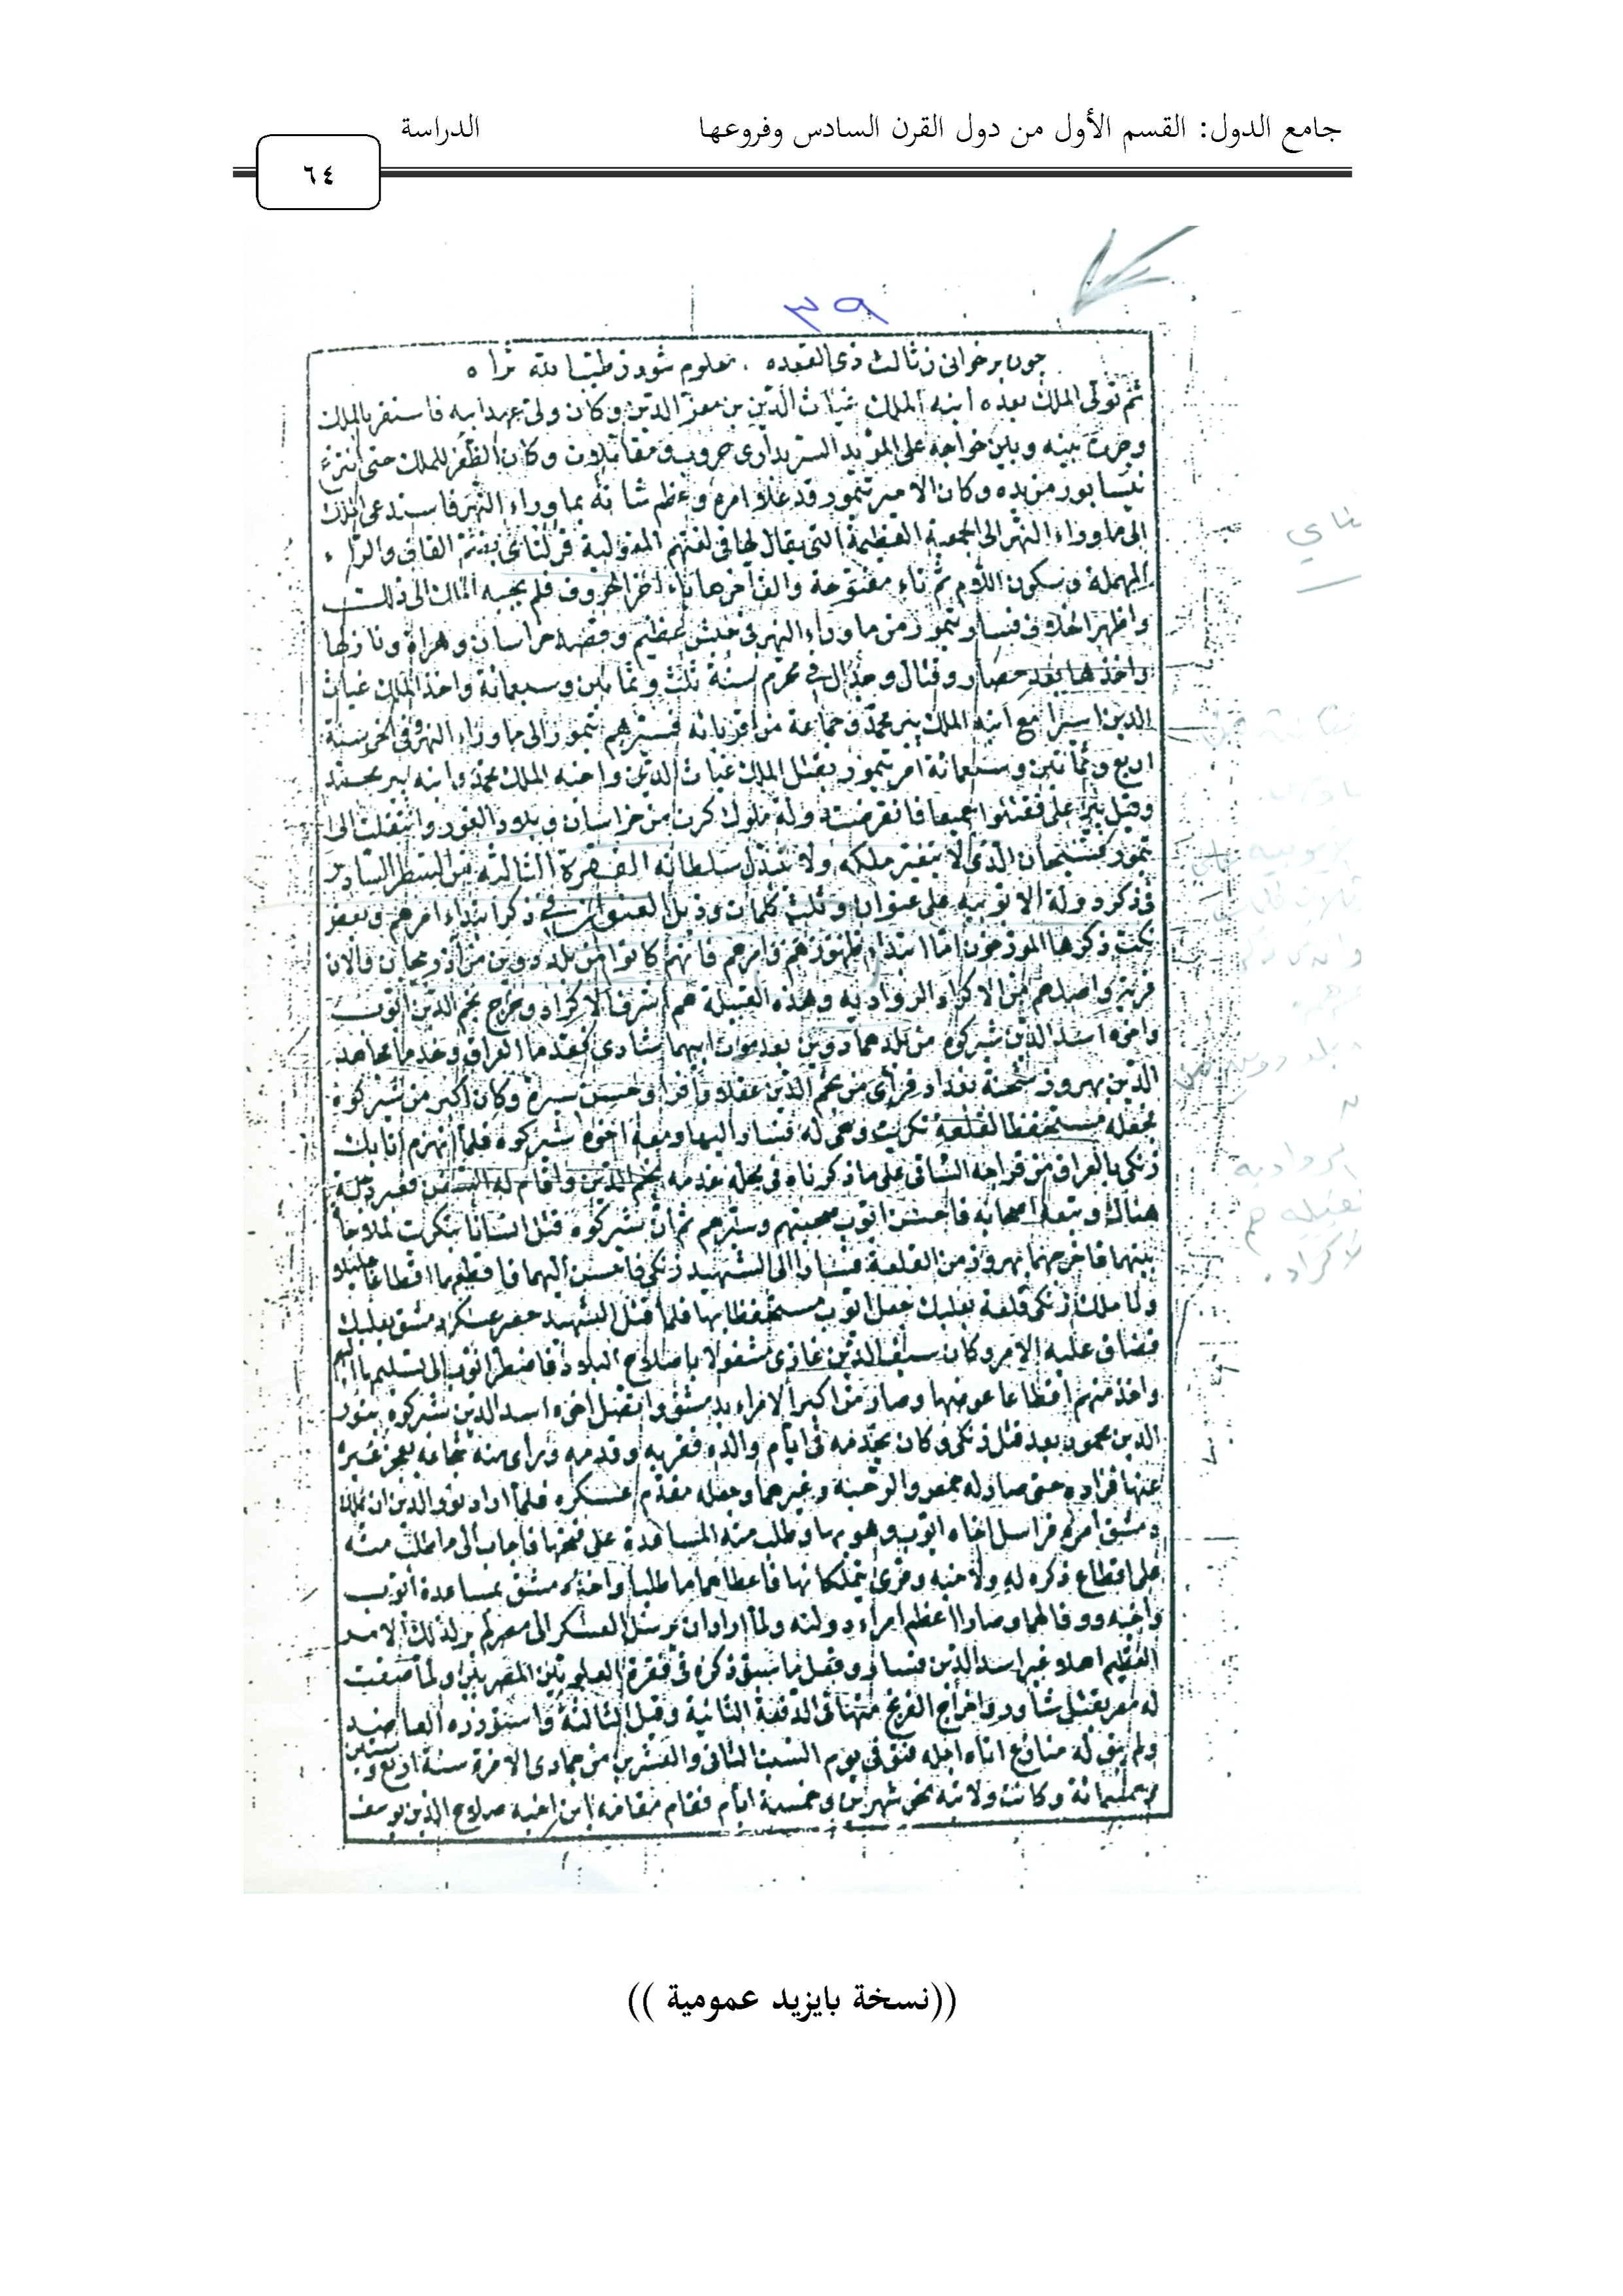 جامع الدول: القسم الأول من دول القرن السادس وفروعها الدراسة
٦٤
٣٩
جون برخوانى ز ثالث ذى القعده معلوم شود
ثم تولى الملك بعده ابنه الملك غياث الدين بن معز الدين وكان ولى عهد ابيه فاستقر بالملك
وجرت بينه وبين خواجه على المؤيد السربدارى حروب ومقاتلات وكان الظفر للملك حتى انتزع
نيسابور من يده وكان الامير تيمور قد علا امره وعظم شانه بما وراء النهر فاستدعى الملك
الى ما وراء النهر الى الجمعية العظيمة التى يقال لها فى لغتهم المغولية قرلتاى بضم القاف والراء
المهملة وسكون اللام ثم تاء مفتوحة والف آخرها ياء آخر الحروف فلم يجبه الملك الى ذلك
واظهر الخلاف فسار تيمور من ما وراء النهر فى جيش عظيم وقصد خراسان وهراة ونازلها
واخذها بعد حصار وقتال وجدال فى محرم سنة ثلث وثمانين وسبعمائة واخذ الملك غياث
الدين اسيرا مع ابنه الملك بير محمد فى جماعة من اقربائه فسيرهم تيمور الى ما وراء النهر وفى آخر سنة
اربع وثمانين وسبعمائة امر تيمور بقتل الملك غياث الدين واخيه الملك محمد وابنه بير محمد
وقيل بير على فقتلوا جميعا فانقرضت دولة ملوك كرت من خراسان وبلاد الغور وانتقلت الى
تيمور فسبحان الذى لا يتغير ملكه ولا تبدل سلطانه الفقرة الثالثة من السطر السادس
فى ذكر دولة الايوبية على عنوان وثلث كلمات وذيل العنوان فى ذكر ابتداء امرهم وبعض
نكت ذكرها المورخون اما ابتداء ظهورهم وامرهم فانهم كانوا من بلد دوين من اذربيجان والان
قرية واصلهم من الاكراد الروادية وهذه القبيلة هم اشرف الاكراد وخرج نجم الدين ايوب
واخوه اسد الدين شيركوه من بلدهما دوين بعد موت ابيهما شادى فقدما العراق وخدما مجاهد
الدين بهروز شحنة بغداد فراى من نجم الدين عقلا وافرا وحسن سيرة وكان اكبر من شيركوه
فجعله مستحفظا لقلعة تكريت وهى له فسار اليها ومعه اخوه شيركوه فلما انهزم اتابك
زنكى بالعراق من قراجه الساقى على ما ذكرناه فى محله خدمه نجم الدين واقام له السفن فعبر دجلة
هناك وتبعه اصحابه فاحسن ايوب صحبتهم وسيرهم ثم ان شيركوه قتل انسانا بتكريت لملاحاة
بينهما فاخرجهما بهروز من القلعة فسارا الى الشهيد زنكى فاحسن اليهما واقطعهما اقطاعا جليلا
ولما ملك زنكى قلعة بعلبك جعل ايوب مستحفظا بها فلما قتل الشهيد حصر عسكر دمشق بعلبك
فضاق عليه الامر وكان سيف الدين غازى مشغولا باصلاح البلاد فاضطر ايوب الى تسليمها اليهم
واخذ منهم اقطاعا عوضها وصار من اكبر الامراء بدمشق واتصل اخوه اسد الدين شيركوه بنور
الدين محمود بعد قتل زنكى وكان يخدمه فى ايام والده فقربه وقدمه وراى منه شجاعة يعجز غيره
عنها فزاده حتى صار له حمص والرحبة وغيرهما وجعله مقدم عسكره فلما اراد نور الدين ان يملك
دمشق امره فراسل اخاه ايوب وهو بها وطلب منه المساعدة على فتحها فاجاب الى ما طلب منه
على اقطاع ذكره له ولاخيه وقرى يتملكانها فاعطاهما ما طلبا واخذ دمشق بمساعدة ايوب
واخيه ووفى لهما وصارا اعظم امراء دولته ولما اراد ان يرسل العسكر الى مصر لم ير لذلك الامر
العظيم اهلا غير اسد الدين فسار وفعل ما سبق ذكره فى فقرة العلويين المصريين ولما صفت
له مصر بقتل شاور واخراج الفرنج منها فى الدفعة الثانية وقيل الثالثة واستوزره العاضد
ولم يبق له منازع اتاه اجله فتوفى يوم السبت الثانى والعشرين من جمادى الاخرة سنة اربع وستين
وخمسمائة وكانت ولايته نحو شهرين وخمسة ايام فقام مقامه ابن اخيه صلاح الدين يوسف
((نسخة بايزيد عمومية ))